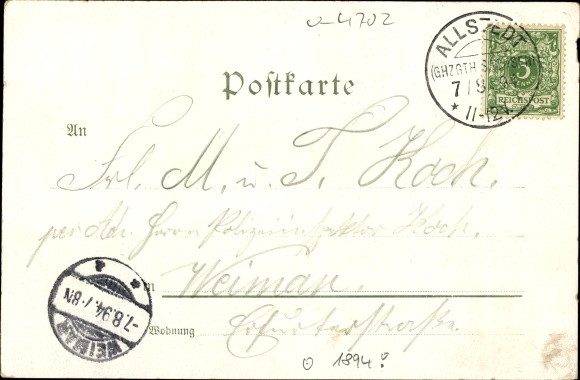 4702
ALLSTEDT
(GHZGTH
7/8
* 11-12V.
5
REICHSPOST
Postkarte
An
Frl. M. u. T. Koch.
per Adr. Herrn Polizeiinspektor Koch.
in Weimar.
Wohnung Erfurterstraße.
WEIMAR
-7.8.94.7-8N
1894!